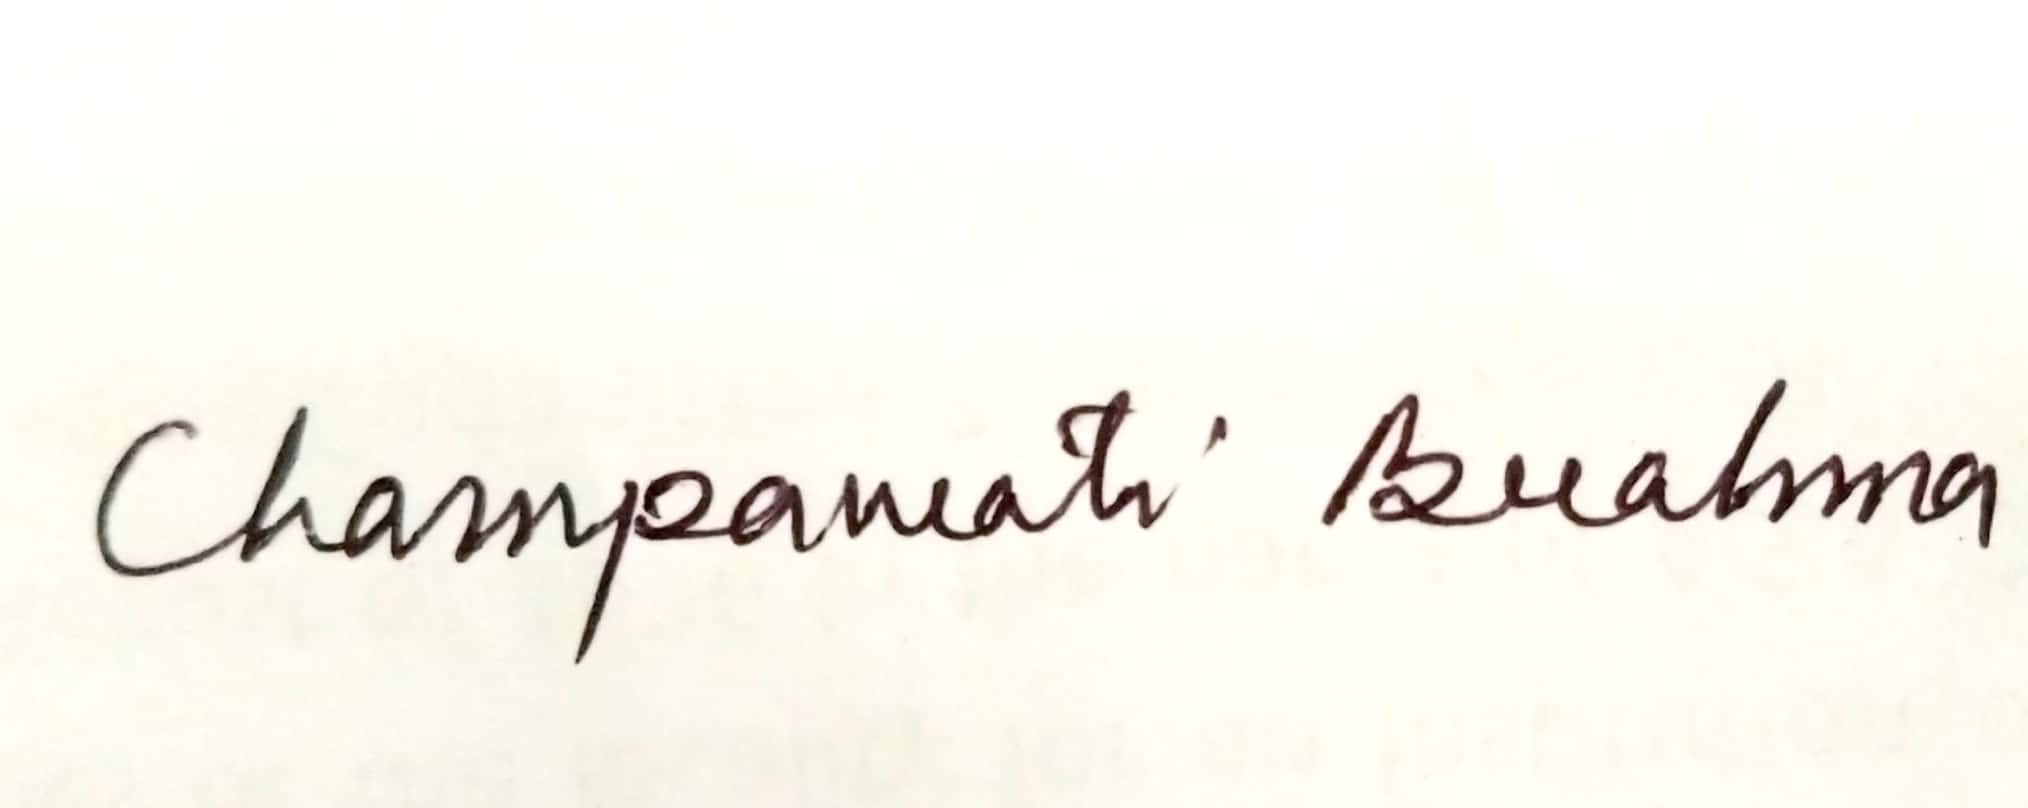 Champawati Brahma